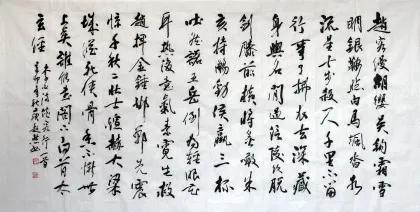 趙客縵胡纓吳鈎霜雪
明銀鞍照白馬颯沓如
流星十步殺一人千里不留
行事了拂衣去深藏
身與名閑過信陵飲脫
劍膝前橫將炙啖朱
亥持觴勸侯嬴三杯
吐然諾五岳倒為輕眼花
耳熱後意氣素霓生救
趙揮金錘邯鄲先震
驚千秋二壯士烜赫大梁
城縱死俠骨香不慚世
上英誰能書閣下白首太
玄經
李白詩俠客行一首